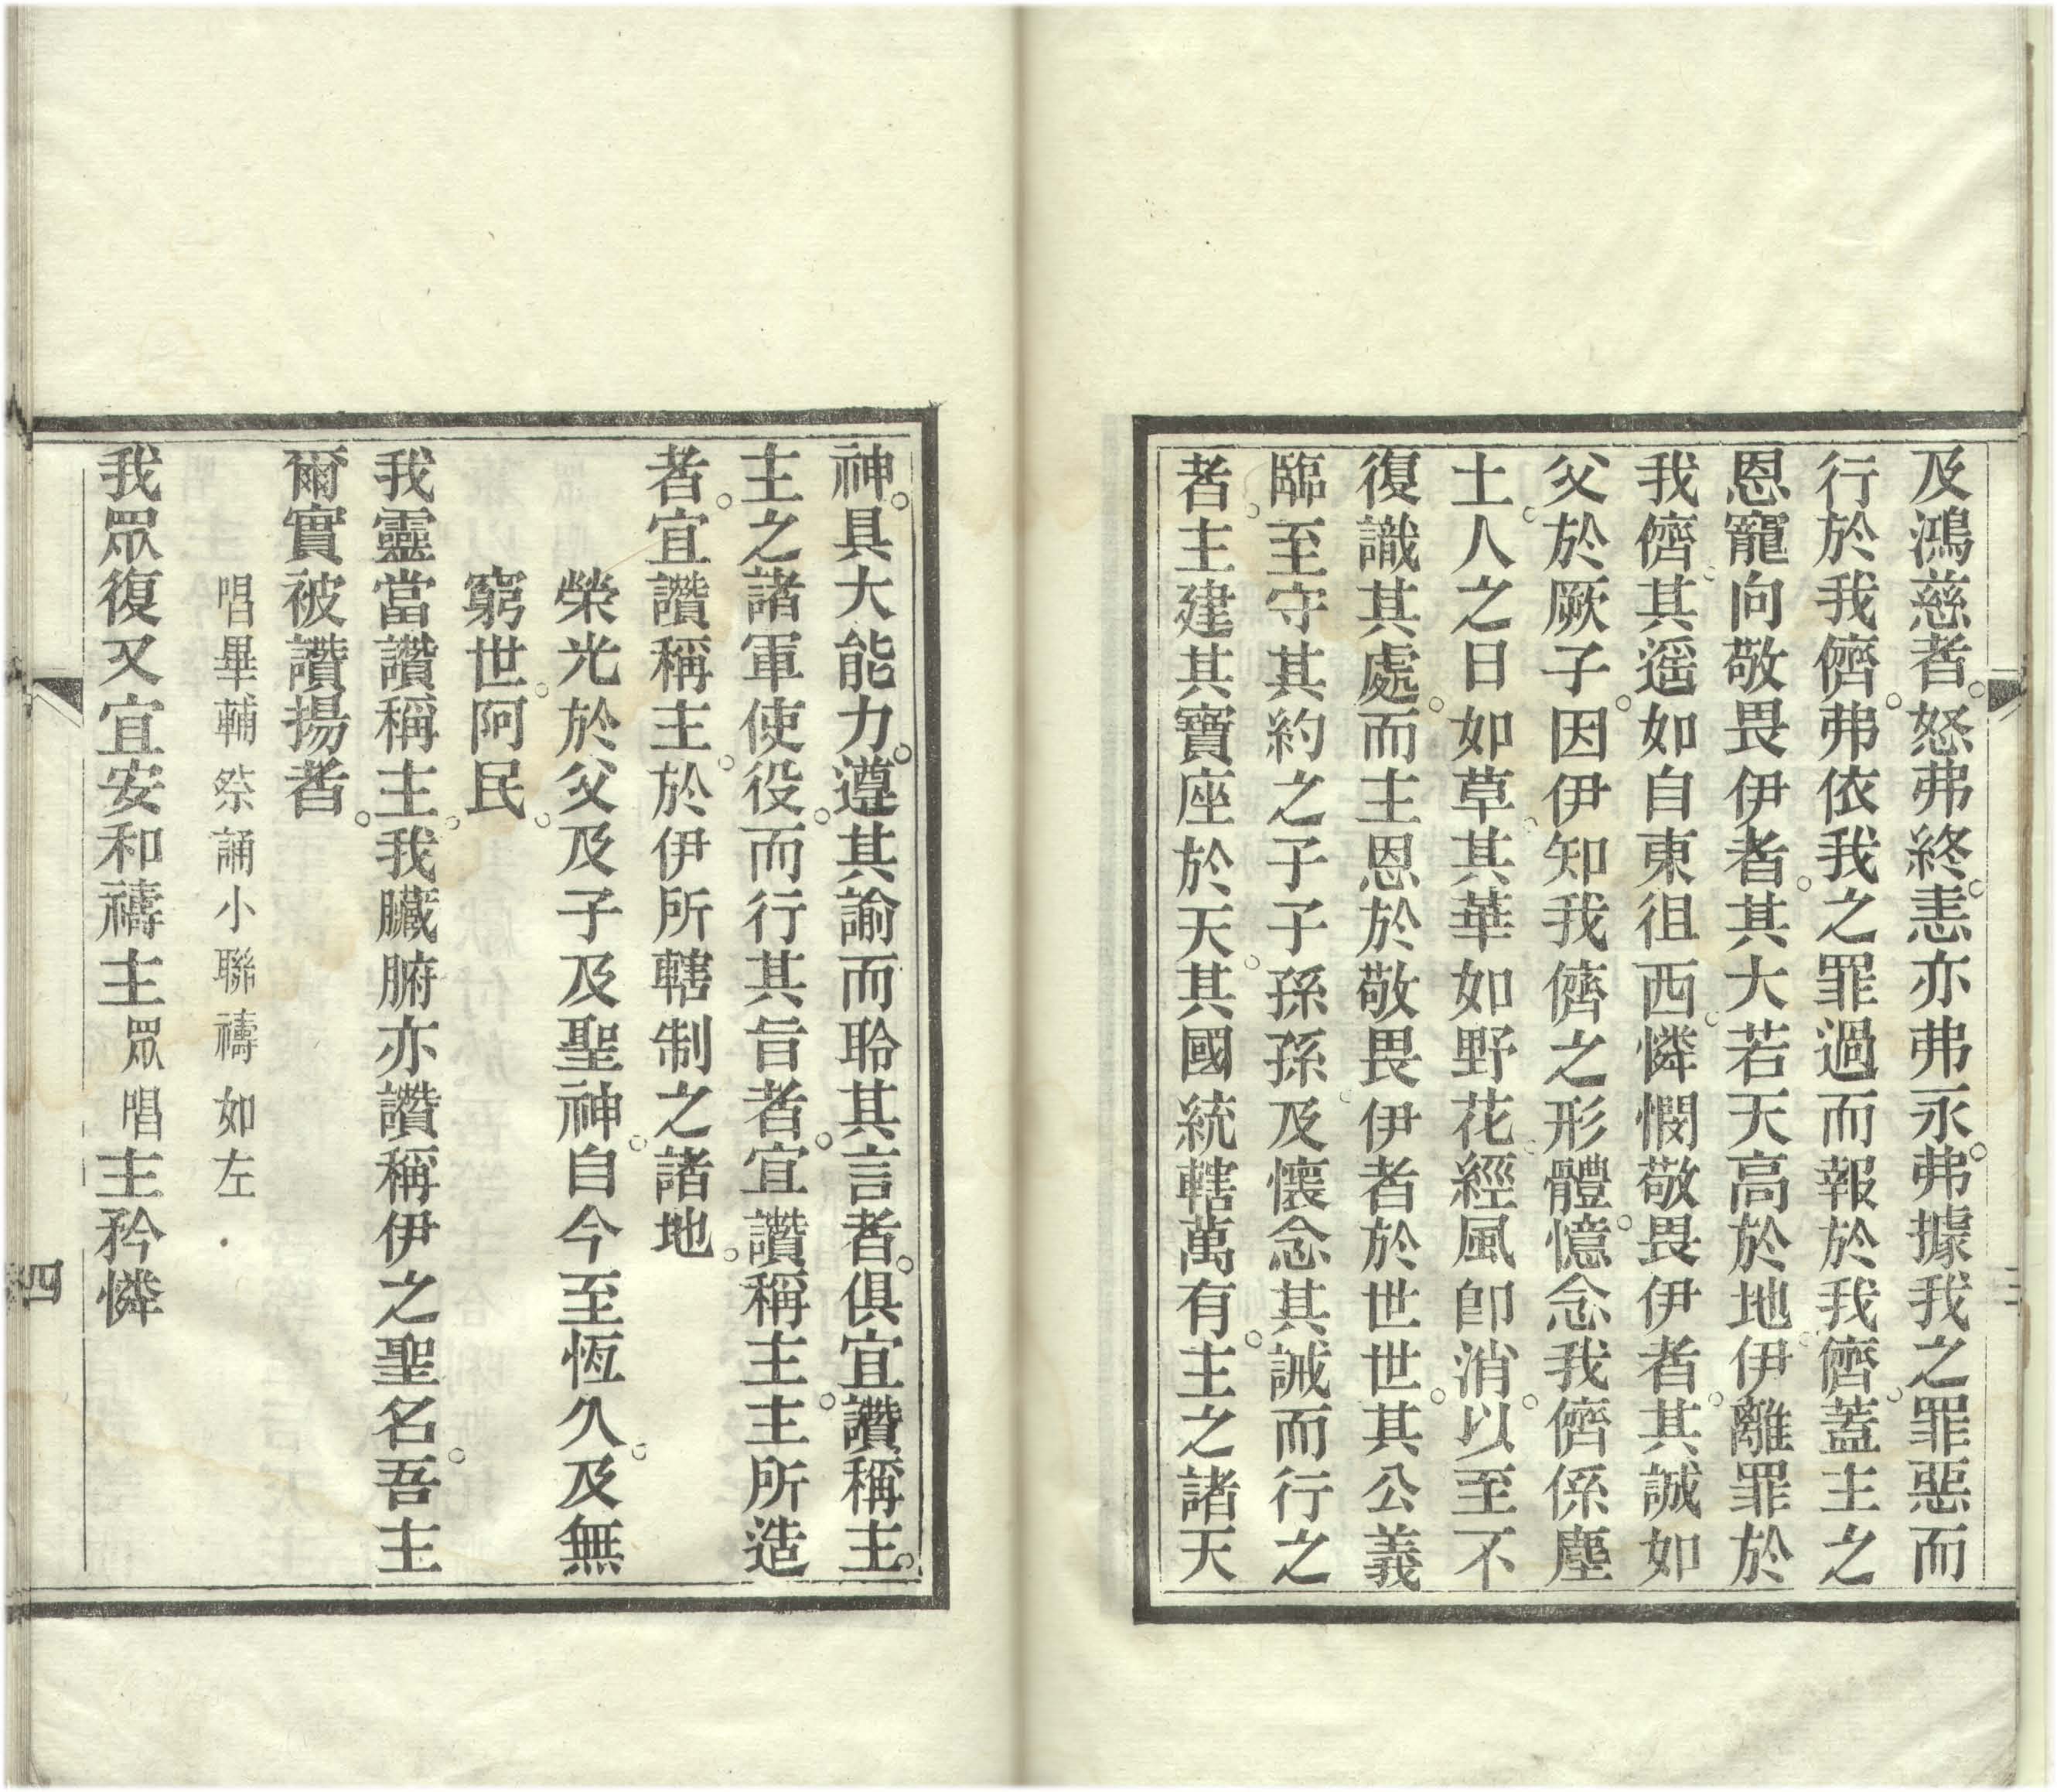 及鴻慈者。怒弗終。恚亦弗永。弗據我之罪惡而
行於我儕。弗依我之罪過而報於我儕。蓋主之
恩寵向敬畏伊者。其大若天高於地。伊離罪於
我儕。其遥如自東徂西。憐憫敬畏伊者。其誠如
父於厥子。因伊知我儕之形體。憶念我儕係塵
土。人之日如草。其華如野花。經風卽消。以至不
復識其處。而主恩於敬畏伊者於世世。其公義
臨至守其約之子子孫孫。及懷念其誡而行之
者。主建其寶座於天。其國統轄萬有。主之諸天
神。具大能力。遵其諭而聆其言者。俱宜讚稱主。
主之諸軍使役。而行其旨者。宜讚稱主。主所造
者。宜讚稱主。於伊所轄制之諸地。
榮光於父及子及聖神。自今至恆久。及無
窮世。阿民。
我靈當讚稱主。我臟腑亦讚稱伊之聖名。吾主
爾實被讚揚者。
唱畢輔祭誦小聯禱如左
我眾復又宜安和禱主 眾唱 主矜憐
三
四